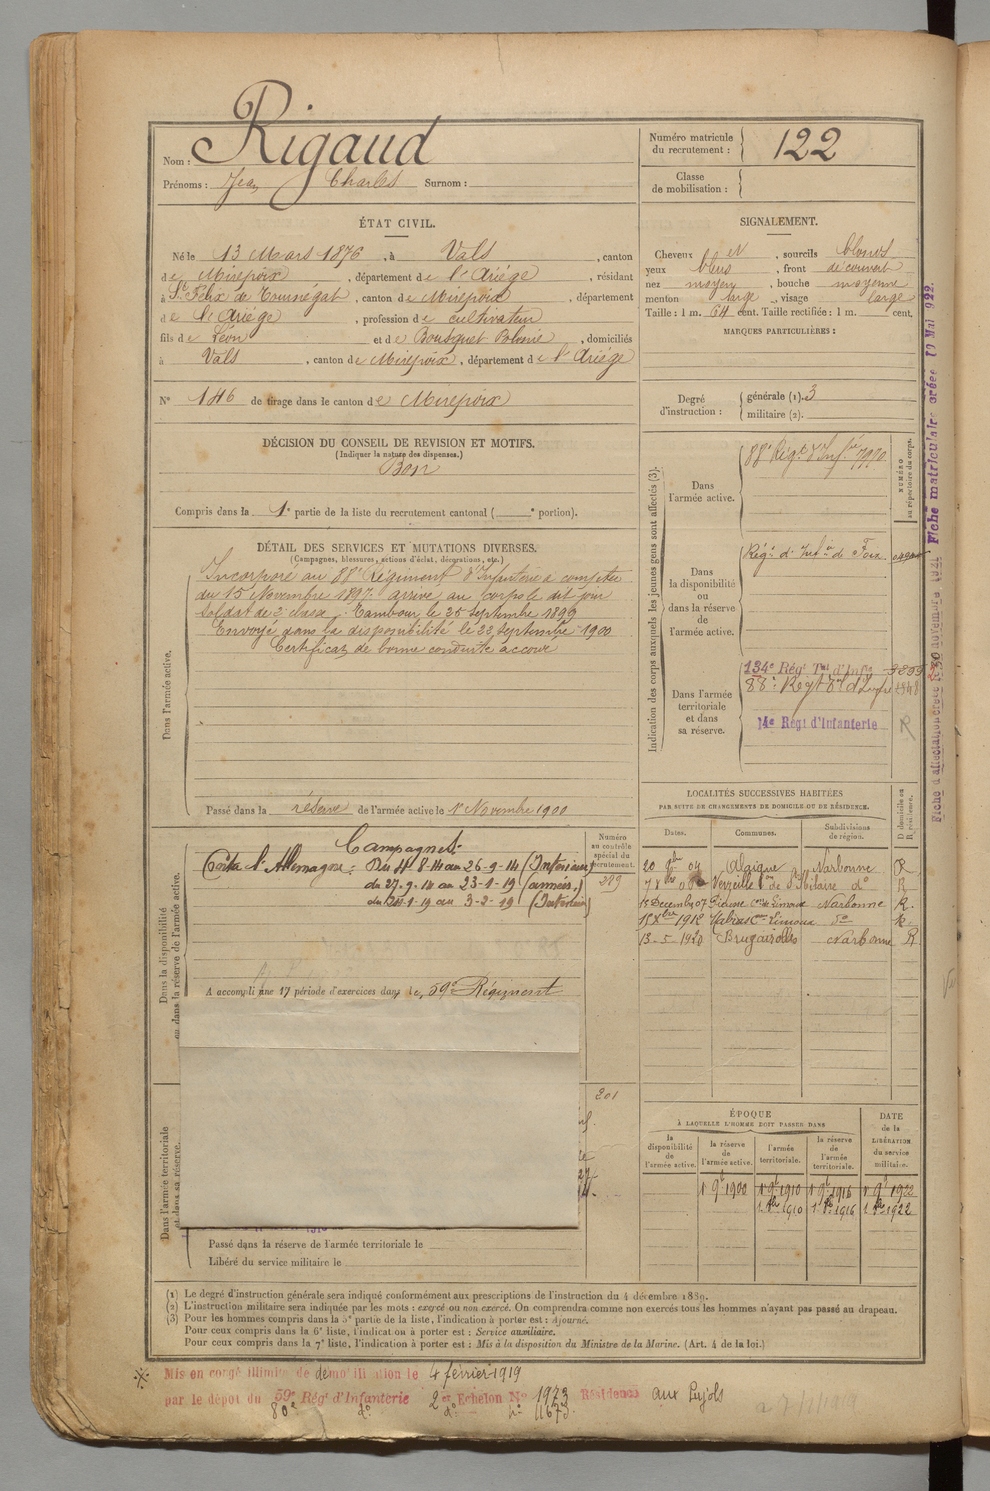 Nom : Rigaud
Prénoms : Jean Charles Surnom :
Numéro matricule du recrutement : 122
Classe de mobilisation :
ÉTAT CIVIL.
Né le 13 Mars 1876, à Vals, canton
de Mirepoix, département de l'Ariège, résidant
à St Félix de Tournégat, canton de Mirepoix, département
de l'Ariège, profession de cultivateur
fils de Léon et de Bousquet Polonie, domiciliés
à Vals, canton de Mirepoix, département de l'Ariège
N° 146 de tirage dans le canton de Mirepoix
SIGNALEMENT.
Cheveux et, sourcils blonds
yeux bleus, front découvert
nez moyen, bouche moyenne
menton large, visage large
Taille : 1 m. 64 cent. Taille rectifiée : 1 m. cent.
MARQUES PARTICULIÈRES :
Degré d'instruction : générale (1). 3
militaire (2).
DÉCISION DU CONSEIL DE REVISION ET MOTIFS.
(Indiquer la nature des dispenses.)
Bon
Compris dans la 1e partie de la liste du recrutement cantonal ( e portion).
DÉTAIL DES SERVICES ET MUTATIONS DIVERSES.
(Campagnes, blessures, actions d'éclat, décorations, etc.)
Dans l'armée active.
Incorporé au 88e Régiment d'Infanterie à compter
du 15 Novembre 1897. arrivé au corps le dit jour
soldat de 2e classe. Tambour le 25 septembre 1899
Envoyé dans la disponibilité le 22 septembre 1900
Certificat de bonne conduite accordé
Passé dans la réserve de l'armée active le 1er Novembre 1900
Indication des corps auxquels les jeunes gens sont affectés (3).
NUMÉRO au répertoire du corps.
Dans l'armée active.
88e Régt d'Infie 7980
Dans la disponibilité ou dans la réserve de l'armée active.
Régt d'Infie de Foix
Dans l'armée territoriale et dans sa réserve.
134e Régt Tal d'Infie
88e Régt Tal d'Infie
14e Régt d'Infanterie R
Fiche matriculaire créée 10 Mai 922.
Fiche d'affectation créée le 30 novembre 1921
Dans la disponibilité ou dans la réserve de l'armée active.
Numéro au contrôle spécial du recrutement.
Campagnes.
Contre l'Allemagne : Du 4-8-14 au 26-9-14 (Intérieur)
du 27-9-14 au 23-1-19 (armées)
du 24-1-19 au 3-2-19 (Intérieur)
A accompli une 1e période d'exercices dans le 59e Régiment
201
Dans l'armée territoriale et dans sa réserve.
Passé dans la réserve de l'armée territoriale le
Libéré du service militaire le
LOCALITÉS SUCCESSIVES HABITÉES
PAR SUITE DE CHANGEMENTS DE DOMICILE OU DE RÉSIDENCE.
Dates. Communes. Subdivisions de région. D domicile ou R résidence.
20 9bre 04 Alaigne Narbonne R
Verzeille Con de St Hilaire do R
15 Décembre 07 Con de Limoux Narbonne R.
15 Xbre 1912 Con Limoux do R.
13-5-1920 Brugairolles Narbonne R
ÉPOQUE
À LAQUELLE L'HOMME DOIT PASSER DANS
la disponibilité de l'armée active. la réserve de l'armée active. l'armée territoriale. la réserve de l'armée territoriale. DATE de la LIBÉRATION du service militaire.
1 9e 1900 1 9e 1910 1 9e 1916 1 9e 1922
1 8bre 1910 1 8bre 1916 1 8bre 1922
(1) Le degré d'instruction générale sera indiqué conformément aux prescriptions de l'instruction du 4 décembre 1889.
(2) L'instruction militaire sera indiquée par les mots : exercé ou non exercé. On comprendra comme non exercés tous les hommes n'ayant pas passé au drapeau.
(3) Pour les hommes compris dans la 5e partie de la liste, l'indication à porter est : Ajourné.
Pour ceux compris dans la 6e liste, l'indication à porter est : Service auxiliaire.
Pour ceux compris dans la 7e liste, l'indication à porter est : Mis à la disposition du Ministre de la Marine. (Art. 4 de la loi.)
Mis en congé illimité de démobilisation le 4 février 1919
par le dépot du 59e Régt d'Infanterie 2e Echelon N° 1973 Résidence aux Pujols
80e do do no 11673